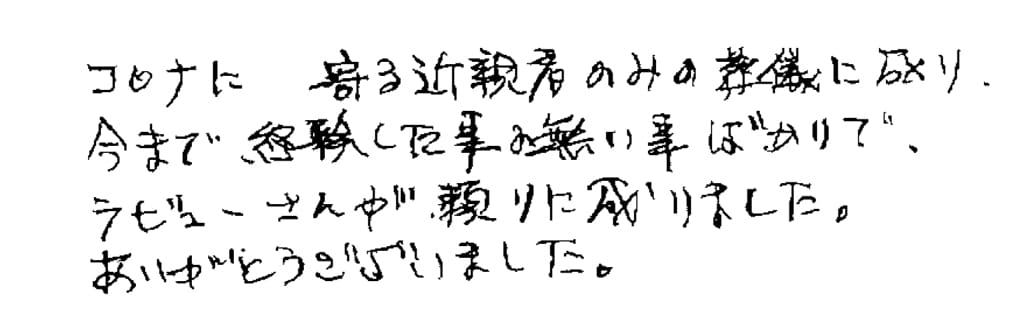 コロナに 寄る近親者のみの葬儀に成り、
今まで、経験した事の無い事ばかりで、
ラビューさんが頼りに成りました。
ありがとうございました。